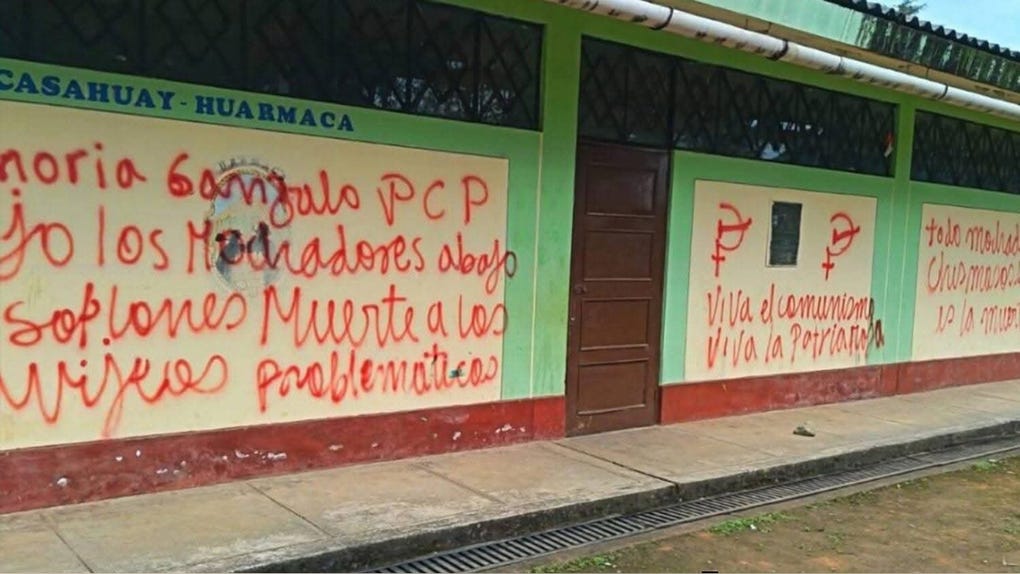 CASAHUAY - HUARMACA
noria Gangulo PCP
jo los Mochadores abajo
soplones Muerte a los
problematicos
Viva el comunismo
Viva la Patria Roja
todo mochad
la muert